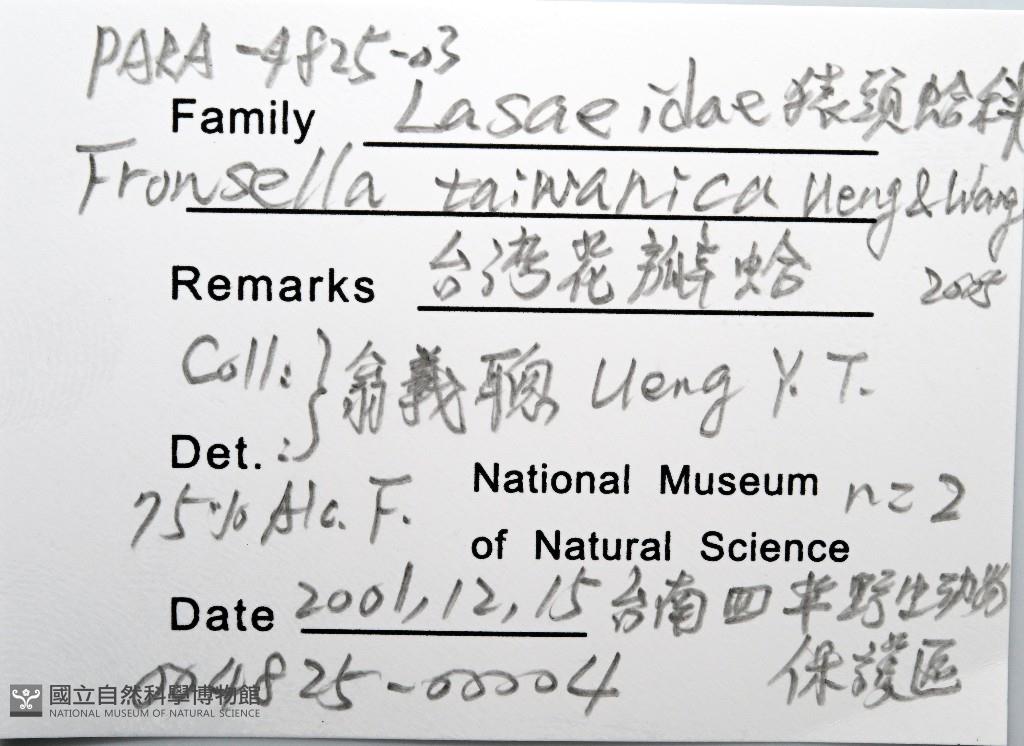 PARA-4825-03
Family Lasaeidae 猿頭蛤科
Fronsella taiwanica Ueng & Wang
2005
Remarks 台灣花瓣蛤
Coll: } 翁義聰 Ueng Y. T.
Det. :
75% Alc. F.
National Museum n=2
of Natural Science
Date 2001,12,15 台南四草野生動物
保護區
004825-00004
國立自然科學博物館
NATIONAL MUSEUM OF NATURAL SCIENCE